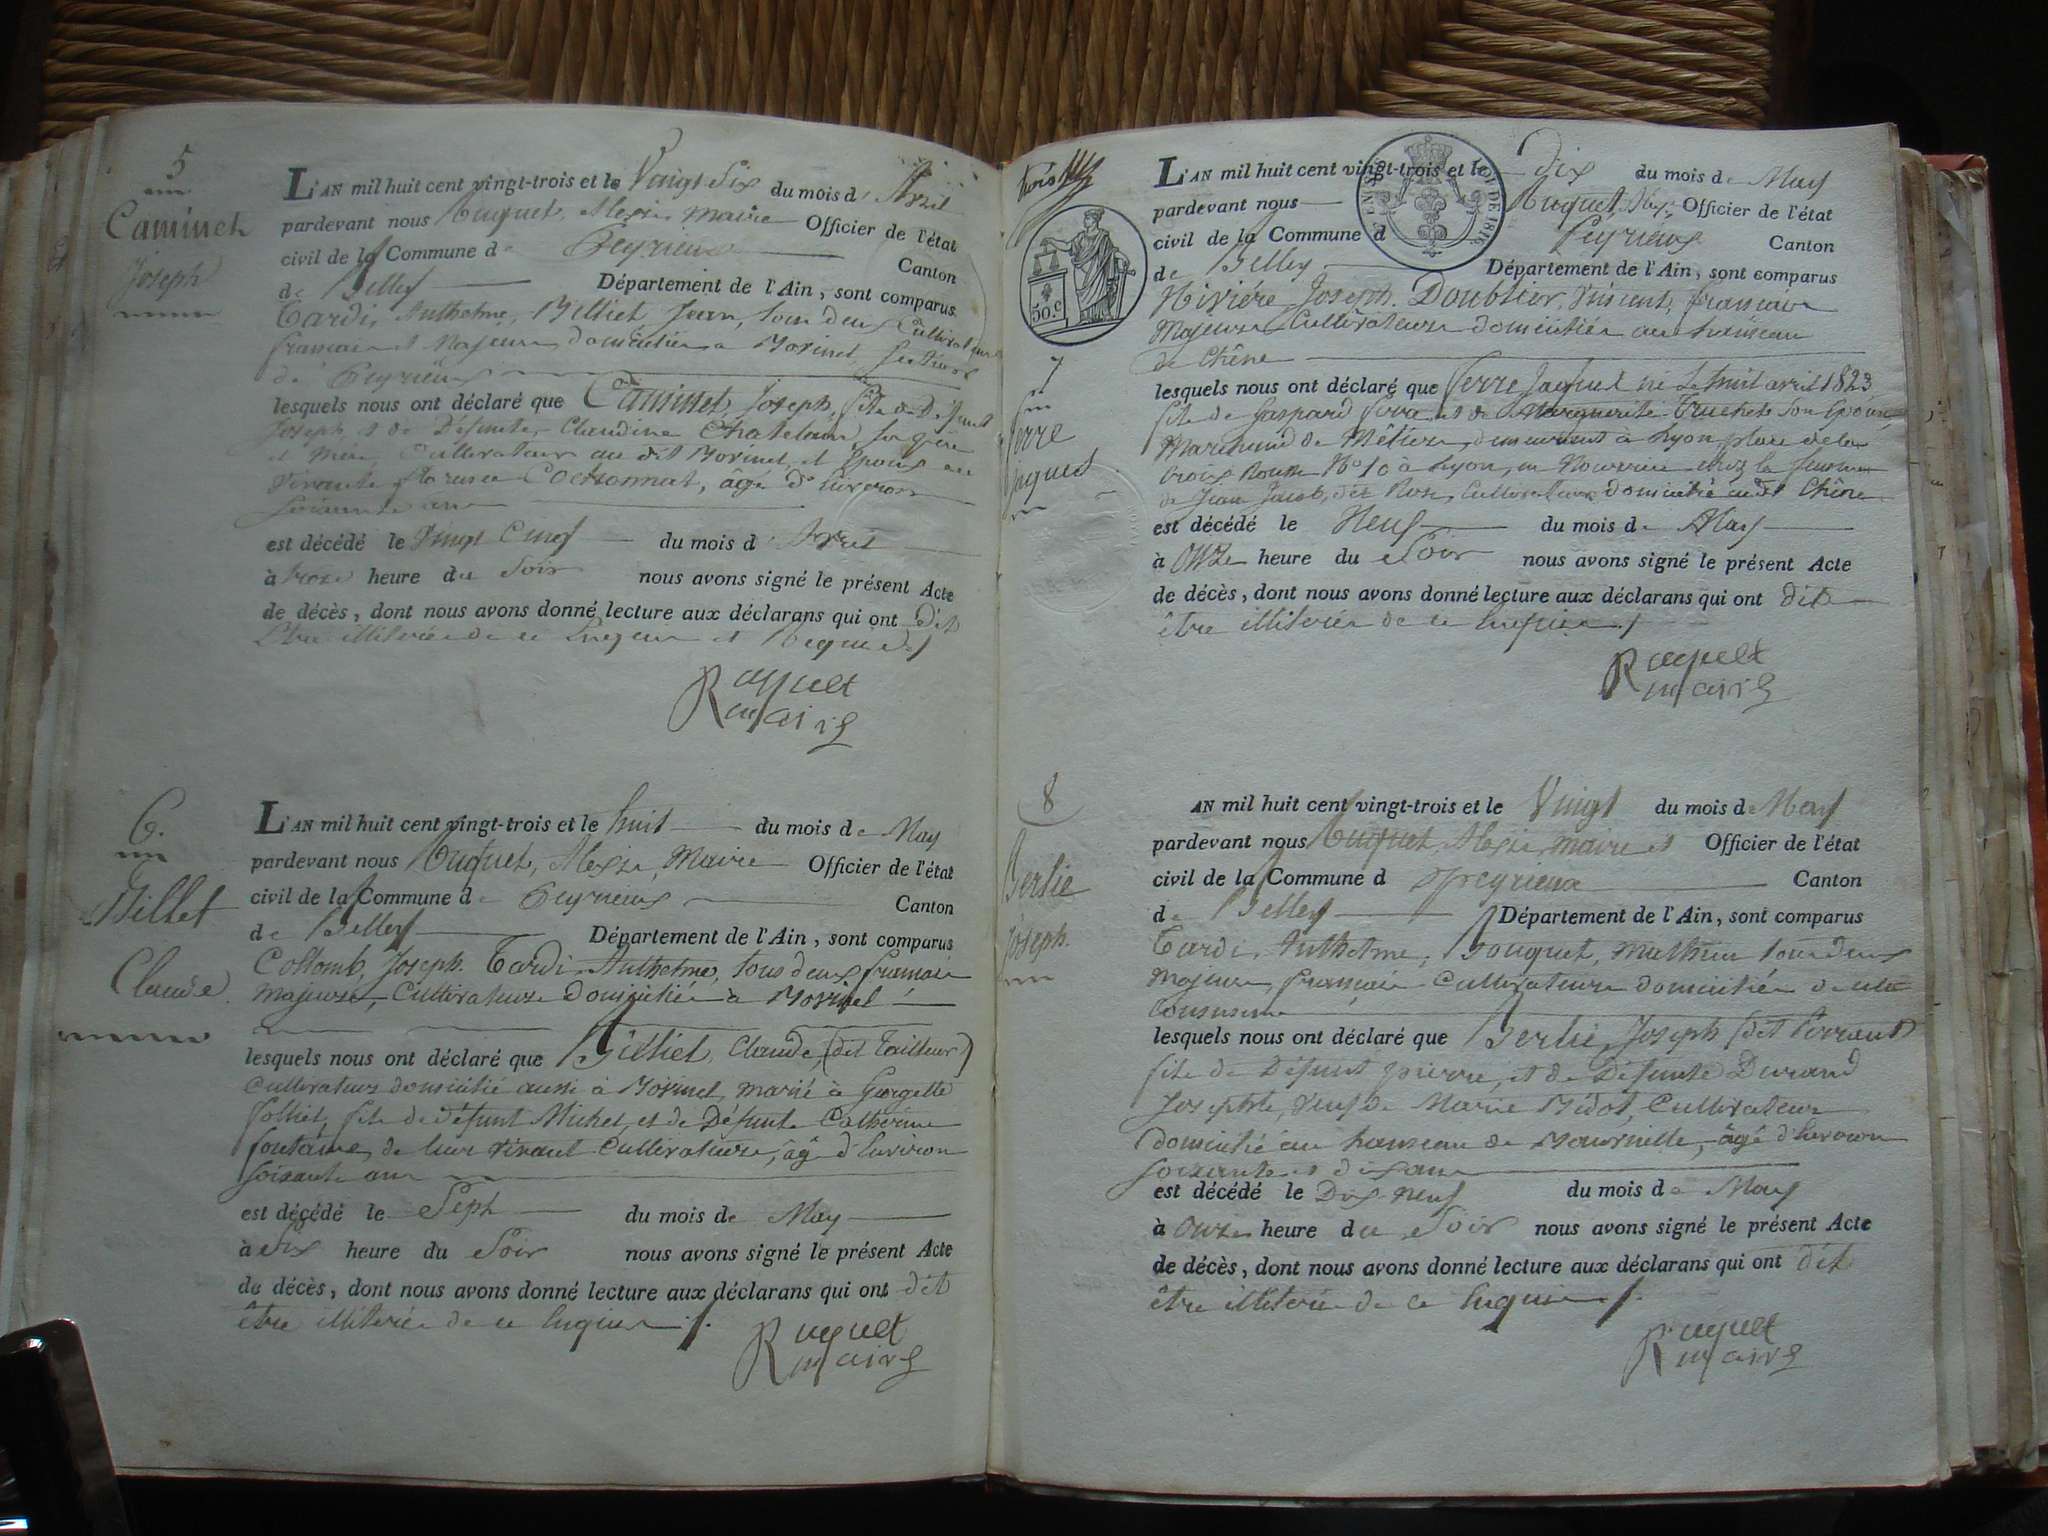 5
Caminet
Joseph
L'AN mil huit cent vingt-trois et le Vingt Six du mois d' Avril
pardevant nous Ruquet, Alexis maire Officier de l'état
civil de la Commune de Peyrieux Canton
de Belley Département de l'Ain, sont comparus
Tardi, Anthelme, Billiet Jean, tous deux Cultivateurs
français et Majeurs domiciliés a Morinet, Section
de Peyrieux
lesquels nous ont déclaré que Caminet, Joseph, fils de Défunt
Joseph, et de Défunte, Claudine Chatelain, ses père
et Mère, Cultivateur au dit Morinet, et Epoux en
Vivante Cochonnat, âgé d'Environ
Soixante ans
est décédé le Vingt Cinq du mois d' Avril
à trois heure du Soir nous avons signé le présent Acte
de décès, dont nous avons donné lecture aux déclarans qui ont Dit
Etre illiterés de ce Enquis et Requis
Ruquet
maire
6.
Billet
Claude
L'AN mil huit cent vingt-trois et le huit du mois de May
pardevant nous Ruquet, Alexis, Maire Officier de l'état
civil de la Commune de Peyrieux Canton
de Belley Département de l'Ain, sont comparus
Collomb, Joseph. Tardi, Anthelme, tous deux français
majeurs, Cultivateurs Domiciliés à Morinet
lesquels nous ont déclaré que Billiet, Claude, (dit Tailleur)
Cultivateur domicilié aussi à Morinet, marié à Georgette
folliet, fils de défunt Michel, et de Défunte Catherine
fontaine, de leur vivant Cultivateurs, âgé d'Environ
Soixante ans
est décédé le Sept du mois de May
à Six heure du Soir nous avons signé le présent Acte
de décès, dont nous avons donné lecture aux déclarans qui ont dit
être illiterés de ce Enquis
Ruquet
maire
50.c
LOI DE 1816
7
Serre
Jaques
L'AN mil huit cent vingt-trois et le Dix du mois de May
pardevant nous Ruquet, Officier de l'état
civil de la Commune d Peyrieux Canton
de Belley Département de l'Ain, sont comparus
Riviére Joseph. Doublier, Vincent, français
Majeurs Cultivateurs domiciliés au hameau
de Chêne
lesquels nous ont déclaré que Serre Jaques né le huit avril 1823
fils de Gaspard Serre et de Marguerite Truchet Son Epouse
Marchand de Métiers, demeurant à Lyon place de la
Croix Rousse No 10 à Lyon, en Nourrice chez la femme
de Jean Jacob, dit Rose, Cultivateur domicilié audit Chêne
est décédé le Neuf du mois de May
à Onze heure du Soir nous avons signé le présent Acte
de décès, dont nous avons donné lecture aux déclarans qui ont dit
être illiterés de ce Enquis
Ruquet
maire
8
Berlie
Joseph.
AN mil huit cent vingt-trois et le Vingt du mois de May
pardevant nous Ruquet, Alexis, maire et Officier de l'état
civil de la Commune d Peyrieux Canton
de Belley Département de l'Ain, sont comparus
Tardi, Anthelme, Bouquet, Mathieu tous deux
Majeurs français Cultivateurs domiciliés de cette
Commune
lesquels nous ont déclaré que Berlie, Joseph (dit
fils de Défunt pierre, et de Défunte Durand
Josephte, Veuf de Marie Midol, Cultivateur
domicilié au hameau de âgé d'Environ
soixante et dix ans
est décédé le Dix neuf du mois de May
à Onze heure du Soir nous avons signé le présent Acte
de décès, dont nous avons donné lecture aux déclarans qui ont dit
être illiterés de ce Enquis
Ruquet
maire